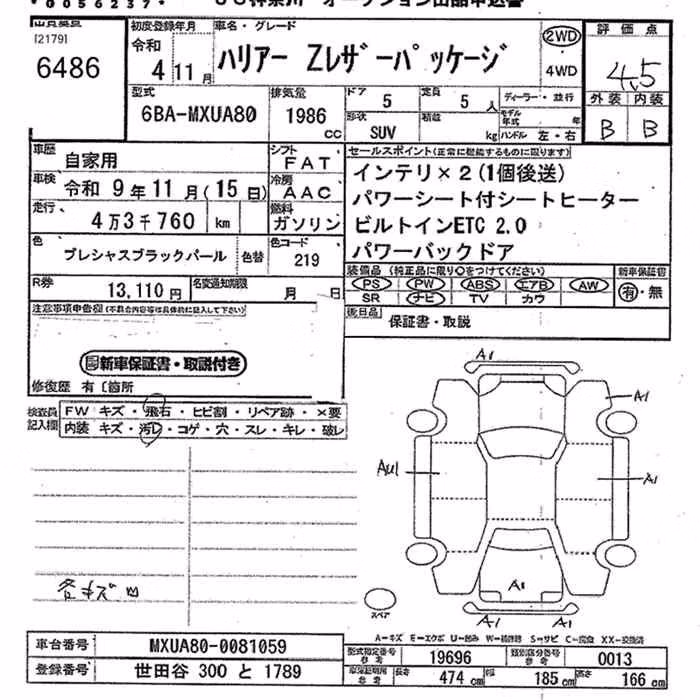 *0056237* JU神奈川 オークション出品申込書
[2179]
6486
初度登録年月
令和
4 11 月
車名・グレード
ハリアー Zレザーパッケージ
2WD
・
4WD
評価点
4.5
外装 内装
B B
型式
6BA-MXUA80
排気量
1986
cc
ドア
5
定員
5
人
ディーラー・並行
形状
SUV
積載
kg
モデル年式
年
ハンドル 左・右
車歴
自家用
シフト
FAT
車検
令和 9 年 11 月 (15 日)
冷房
AAC
走行
4万3千760 km
燃料
ガソリン
色
プレシャスブラックパール
色替
色コード
219
R券
13,110 円
名変通知期限
月 日
セールスポイント(正常に機能するものに限ります)
インテリ×2(1個後送)
パワーシート付シートヒーター
ビルトインETC 2.0
パワーバックドア
装備品 (純正品に限り○をつけてください)
新車保証書
PS PW ABS エアB AW
SR ナビ TV カワ
有・無
後日品
保証書・取説
注意事項申告欄(不具合内容等は具体的に記入して下さい)
新車保証書・取説付き
修復歴 有〔箇所
検査員
記入欄
FW キズ・飛石・ヒビ割・リペア跡・×要
内装 キズ・汚レ・コゲ・穴・スレ・キレ・破レ
A1
A1
AU1
A1
A1
A1 A1
各キズ凹
スペア
A-キズ E-エクボ U-凹み W-補修跡 S-サビ C-腐食 XX-交換済
車台番号
MXUA80-0081059
登録番号
世田谷 300 と 1789
型式指定番号
参考
19696
類別区分番号
参考
0013
車検証記載
参考
長さ
474 cm
幅
185 cm
高さ
166 cm